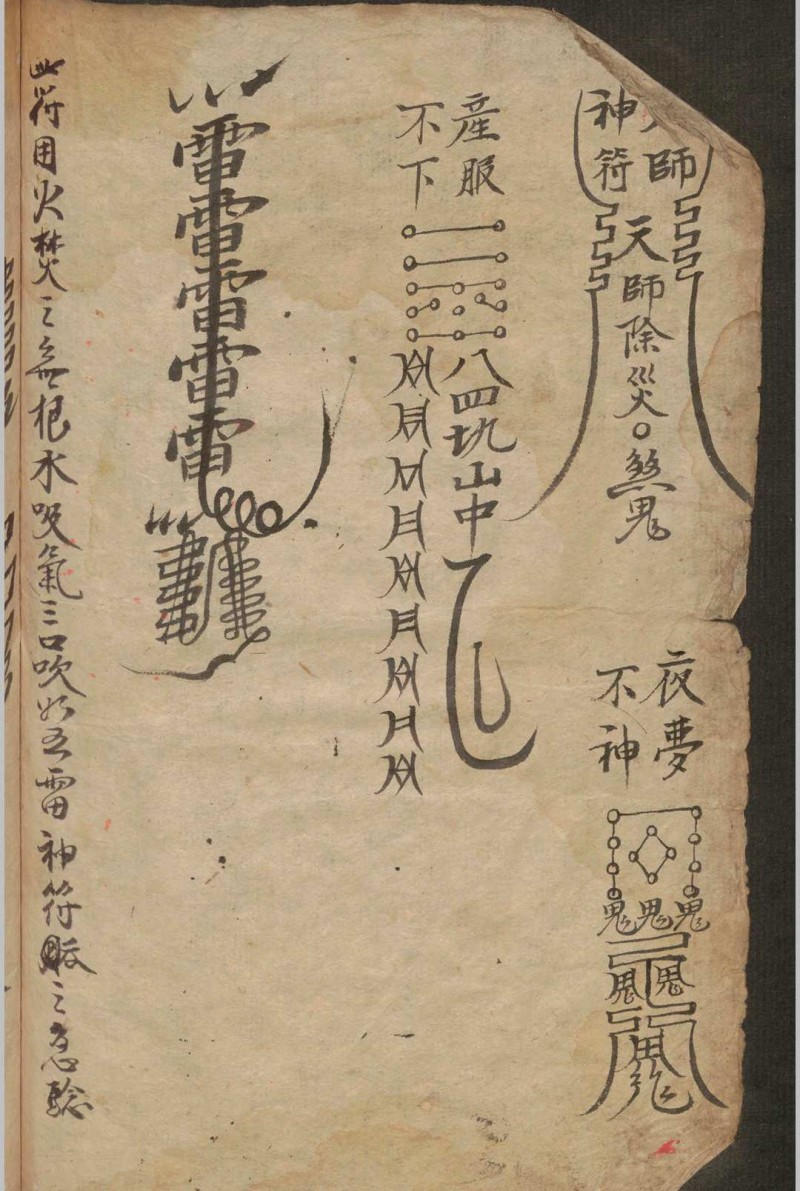 師
神符
天師除災
煞鬼
夜夢
不神
鬼鬼鬼
鬼鬼
鬼
產服
不下
八四坑山中
雷雷雷雷雷
此符用火焚之無根水吸氣三口吹如五雷神符服之急驗